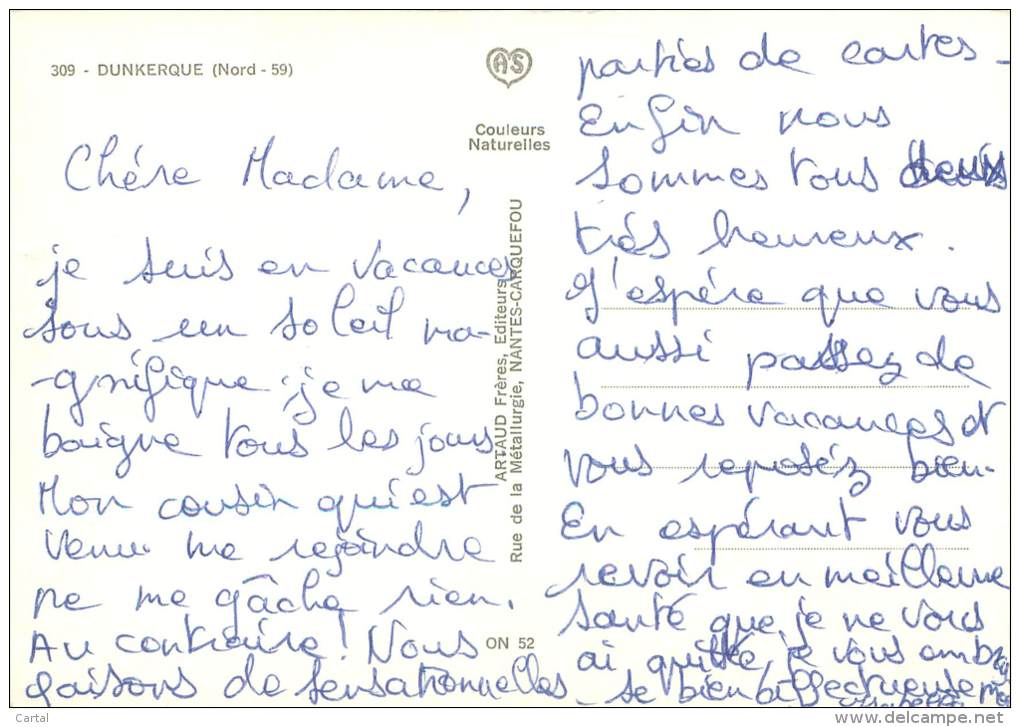 309 - DUNKERQUE (Nord - 59)
AS
Couleurs
Naturelles
Chére Madame,
je suis en vacances
sous un soleil ma-
-gnifique, je me
baigne tous les jours.
Mon cousin qui est
venu me rejoindre
ne me gâche rien.
Au contraire! Nous
faisons de sensationnelles
ARTAUD Frères, Editeurs
Rue de la Métallurgie, NANTES-CARQUEFOU
ON 52
parties de cartes -
Enfin nous
sommes tous deux
trés heureux.
J'espére que vous
aussi passez de
bonnes vacances et
vous reposéz bien.
En espérant vous
revoir en meilleure
santé que je ne vous
ai quittée, je vous embras
se bien affectueusement
Cartal
www.delcampe.net